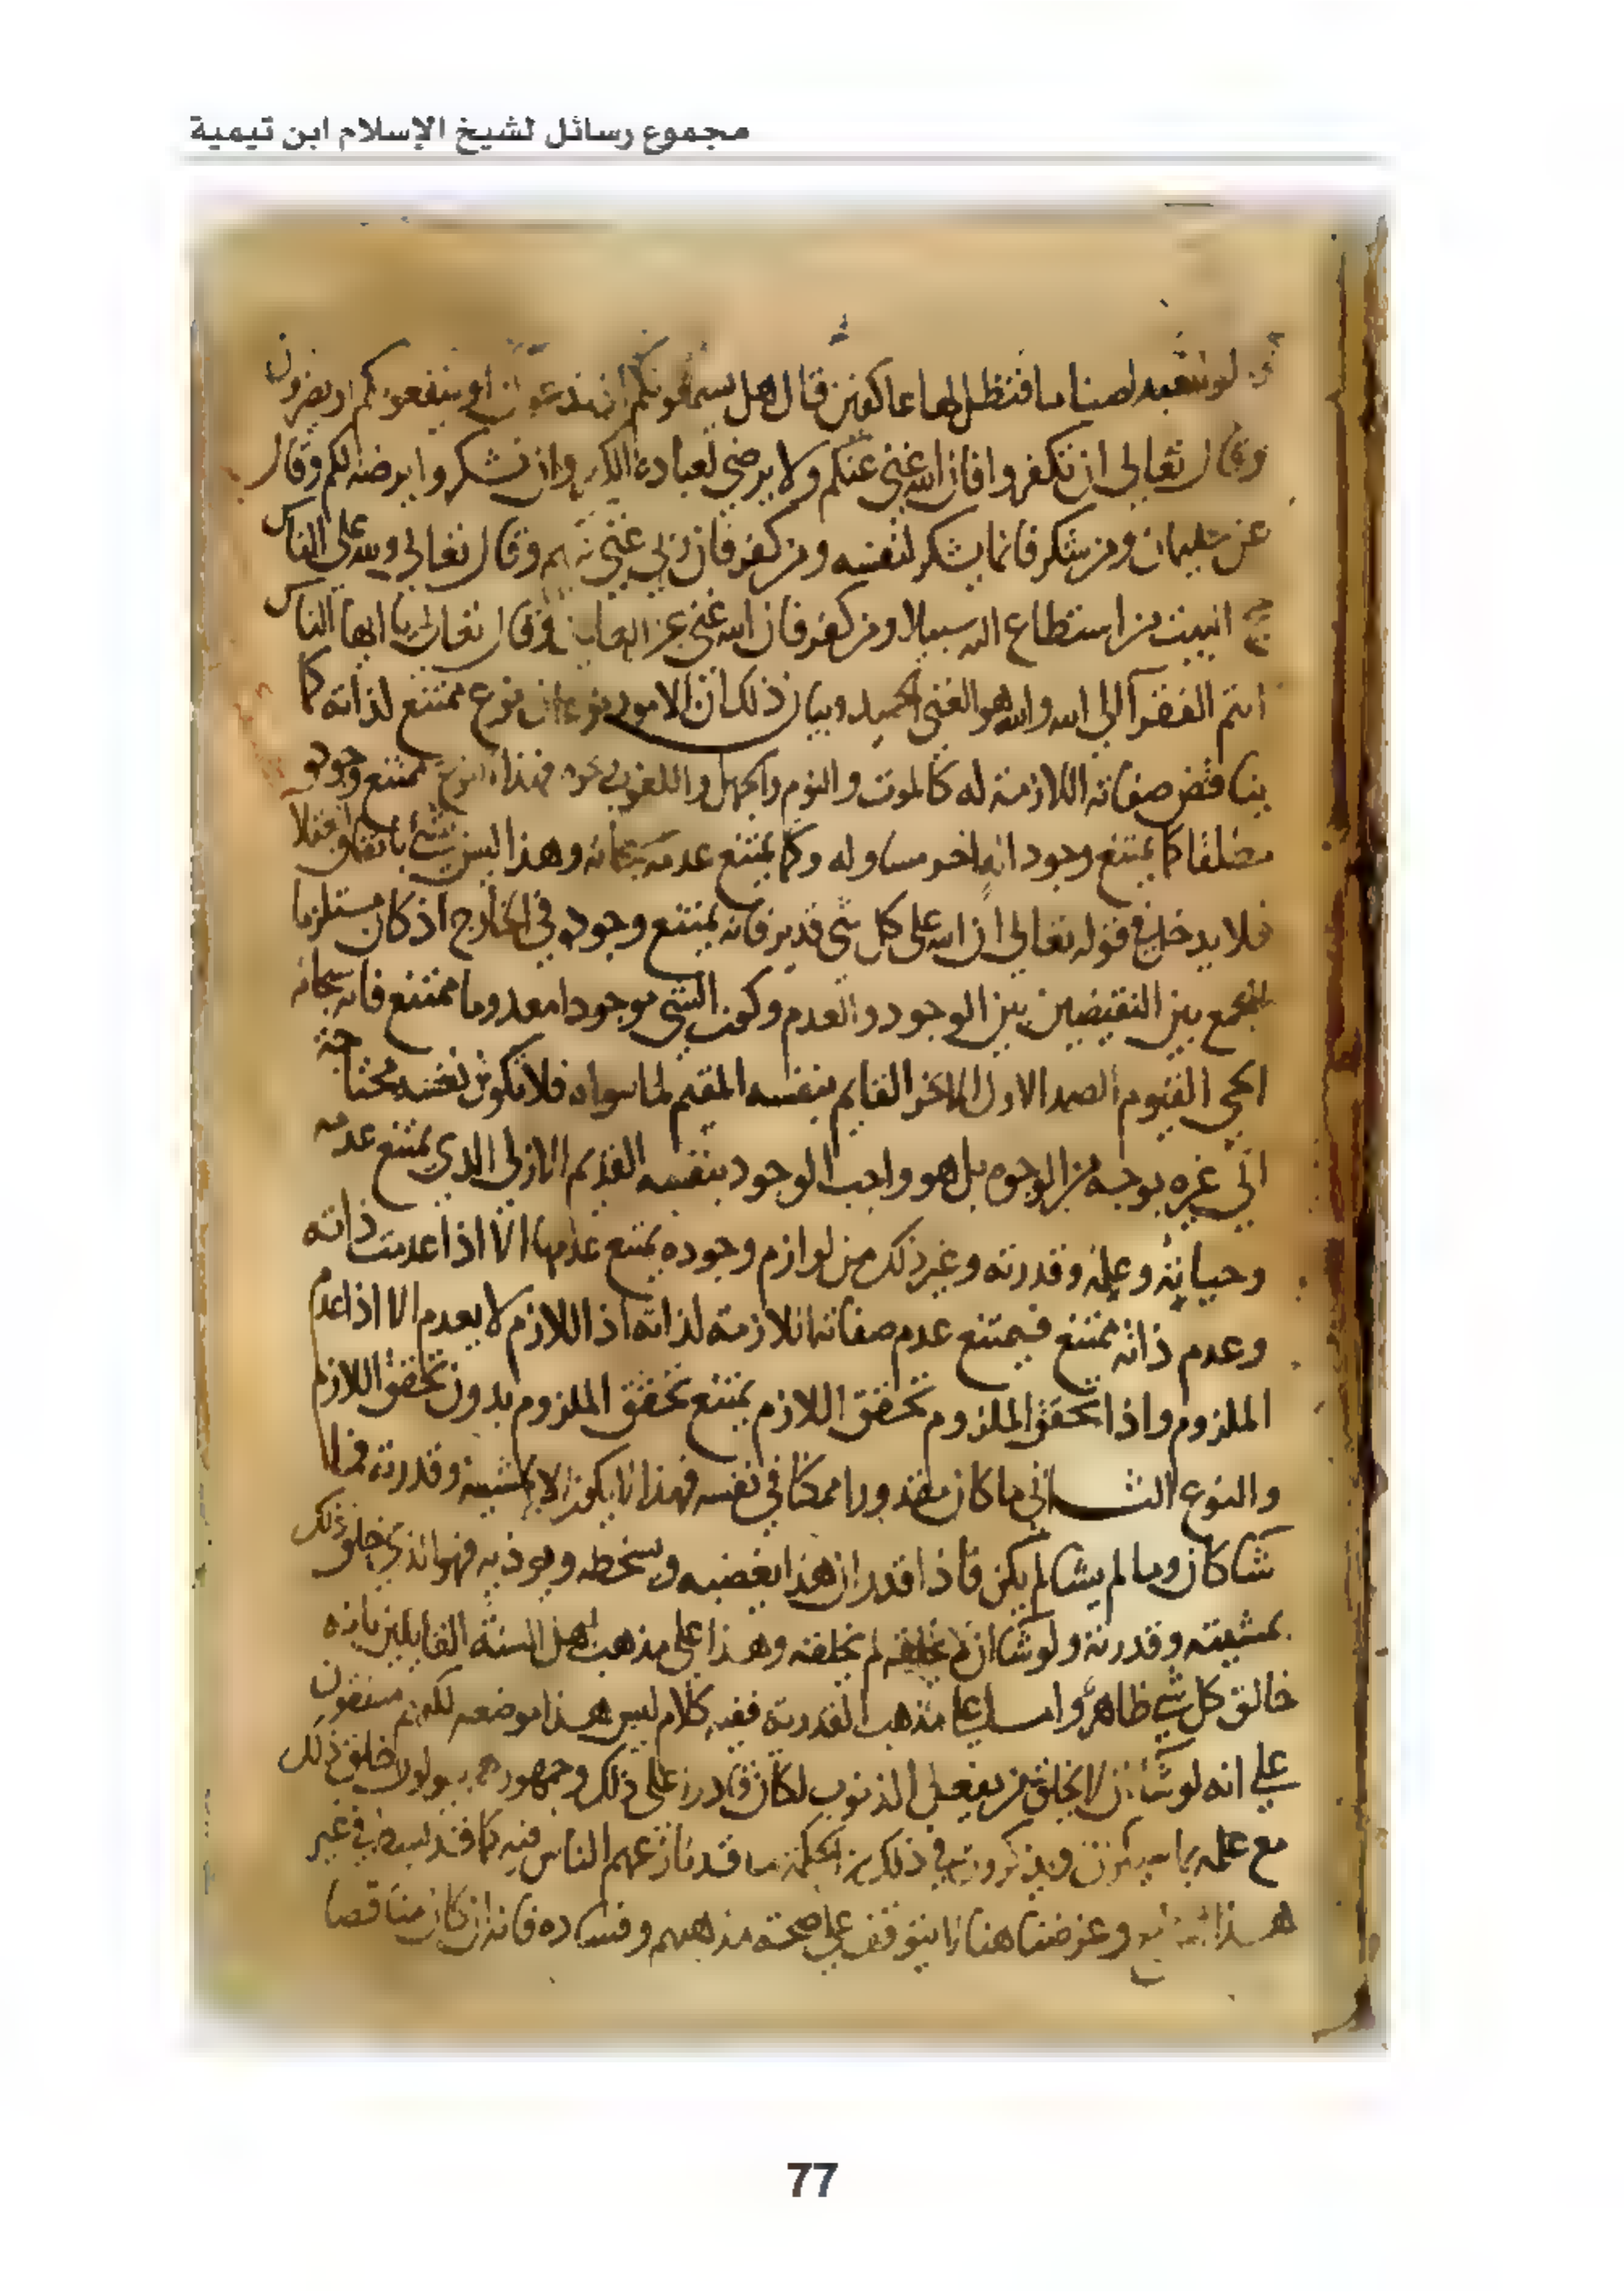 مجموع رسائل لشيخ الإسلام ابن تيمية
لو نعبد اصناما فنظل لها عاكفين قال هل يسمعونكم اذ تدعون او ينفعونكم او يضرون
وقال تعالى ان تكفروا فان الله غني عنكم ولا يرضى لعباده الكفر وان تشكروا يرضه لكم وقال
عن سليمان ومن شكر فانما يشكر لنفسه ومن كفر فان ربي غني كريم وقال تعالى ولله على الناس
حج البيت من استطاع اليه سبيلا ومن كفر فان الله غني عن العالمين وقال تعالى يا ايها الناس
انتم الفقرآ الى الله والله هو الغني الحميد وبيان ذلك ان الامور نوعان نوع ممتنع لذاته كما
يناقض صفاته اللازمة له كالموت والنوم والجهل واللغوب فهذا النوع ممتنع وجوده
مطلقا كما يمتنع وجود اله اخر مساو له وكما يمتنع عدمه سبحانه وهذا ليس بشيء باتفاق العقلا
فلا يدخل في قوله تعالى ان الله على كل شي قدير فانه يمتنع وجوده في الخارج اذ كان مستلزما
للجمع بين النقيضين بين الوجود والعدم وكون الشي موجودا معدوما ممتنع فانه سبحانه
الحي القيوم الصمد الاول الاخر القايم بنفسه المقيم لما سواه فلا تكون نفسه محتاجة
الى غيره بوجه من الوجوه بل هو واجب الوجود بنفسه القديم الازلي الذي يمتنع عدمه
وحياته وعلمه وقدرته وغير ذلك من لوازم وجوده يمتنع عدمها الا اذا عدمت ذاته
وعدم ذاته ممتنع فيمتنع عدم صفاته اللازمة لذاته اذ اللازم لا يعدم الا اذا عدم
الملزوم واذا تحقق الملزوم تحقق اللازم يمتنع تحقق الملزوم بدون تحقق اللازم
والنوع الثاني ما كان مقدورا ممكنا في نفسه فهذا لا يكون الا بمشيته وقدرته فما
شا كان وما لم يشا لم يكن فاذا قدر ان هذا يغضبه ويسخطه ويوذيه فهو الذي خلق ذلك
بمشيته وقدرته ولو شا ان لا يخلقه لم يخلقه وهذا على مذهب اهل السنة القايلين بانه
خالق كل شي ظاهر واما على مذهب القدرية ففيه كلام ليس هذا موضعه لكنهم متفقون
على انه لو شا ان لا يخلق من يفعل الذنوب لكان قادرا على ذلك وجمهورهم يقولون خلق ذلك
مع علمه بما سيكون ويذكرون في ذلك من الحكمة ما قد نازعهم الناس فيه كما قد بسط في غير
هذا الموضع وغرضنا هنا لا يتوقف على صحة مذهبهم وفساده فانه ان كان متناقضا
77